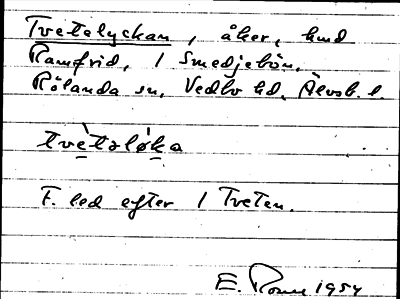 Tvetalyckan, åker, hmd
Ramfrid, 1 Smedjebön,
Rölanda sn, Vedbo hd, Älvsb. l.
tvètaløka
F. led efter 1 Tveten.
E. 1954